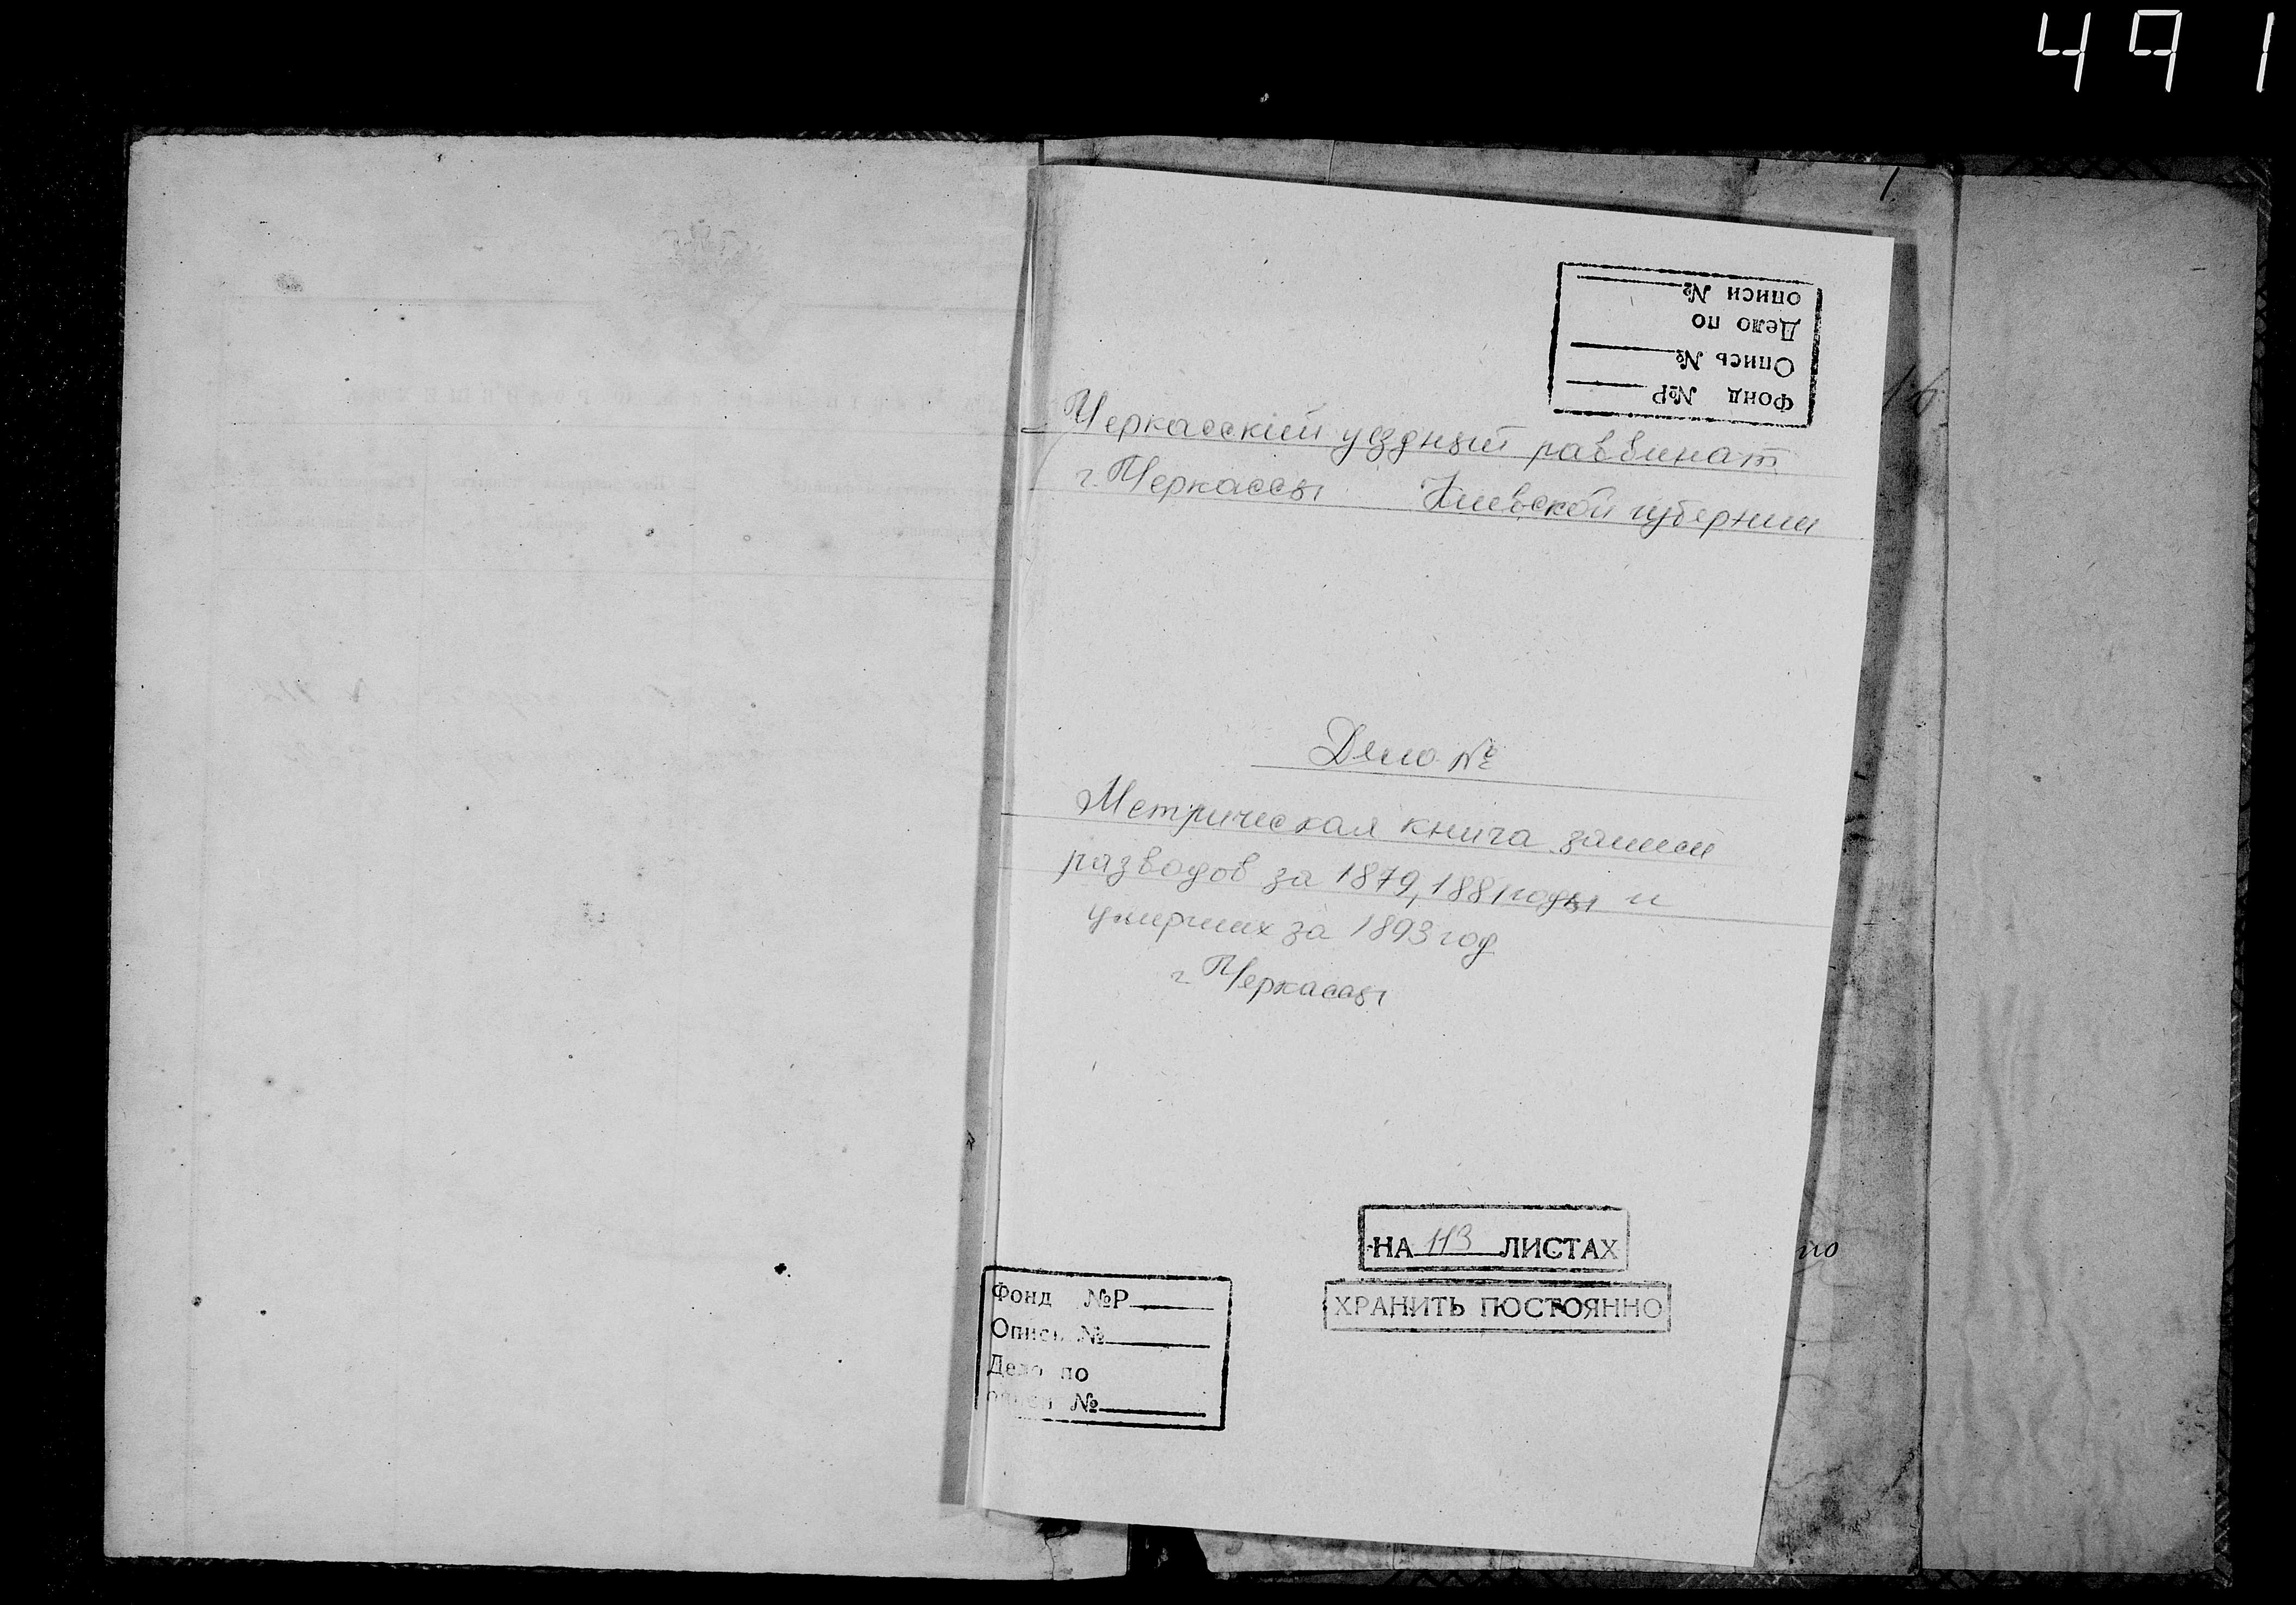 491
1.
Фонд №Р
Опись №
Дело по
описи №
Черкасский уездный раввинат
г. Черкассы Киевской губернии
Дело №
Метрическая книга записи
разводов за 1879, 1881 годы и
умерших за 1893 год
г. Черкассы
НА 113 ЛИСТАХ
ХРАНИТЬ ПОСТОЯННО
по
Фонд №Р
Опись №
Дело по
описи №